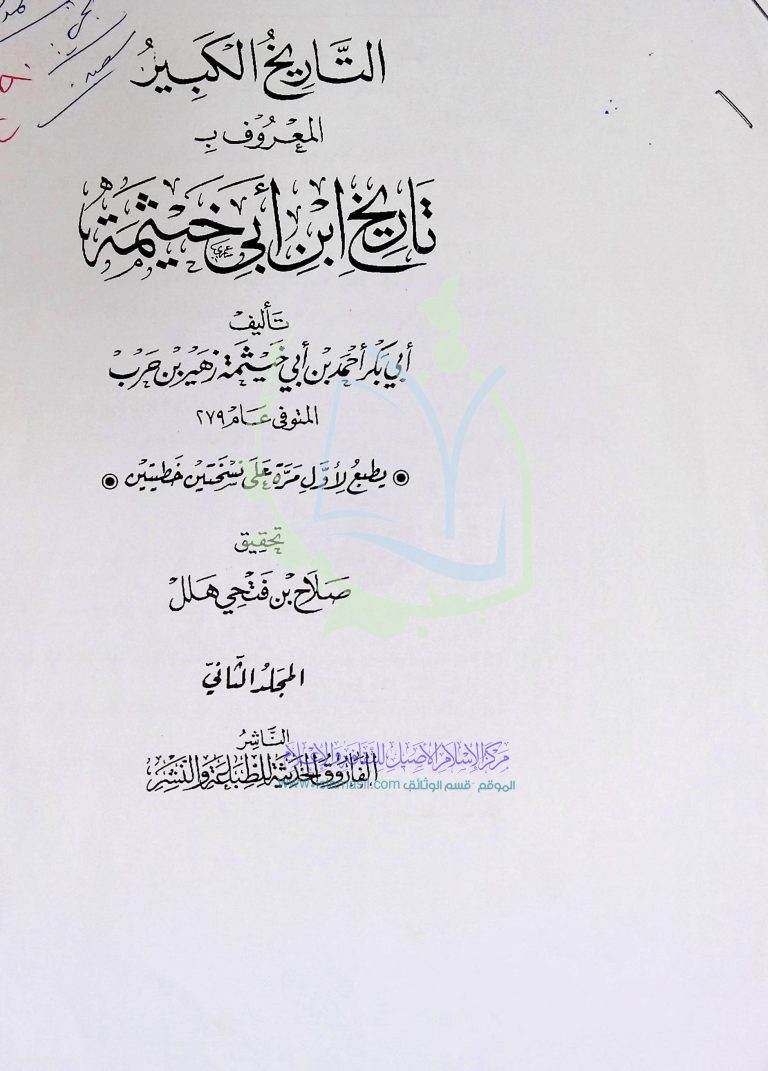 التَّارِيخُ الكَبِيرُ
المَعْرُوف بِ
تَارِيخِ ابْنِ أَبِي خَيْثَمَةَ
تَأليف
أبي بَكر أحمَد بن أبي خَيْثمَة زهَير بن حَرب
المتوفى عَام ٢٧٩
يطبع لأوَّل مَرَّة عَلى نسْختَين خَطيتين
تحقِيق
صَلَاح بْن فَتحِي هَلل
المجَلدُ الثَّانيّ
النَّاشِرُ
الفَارُوق الحَديثَة للطِّبَاعَة وَالنَّشر
مركز الإسلام الأصيل للثقافة والإعلام
الموقع - قسم الوثائق www.islamasil.com